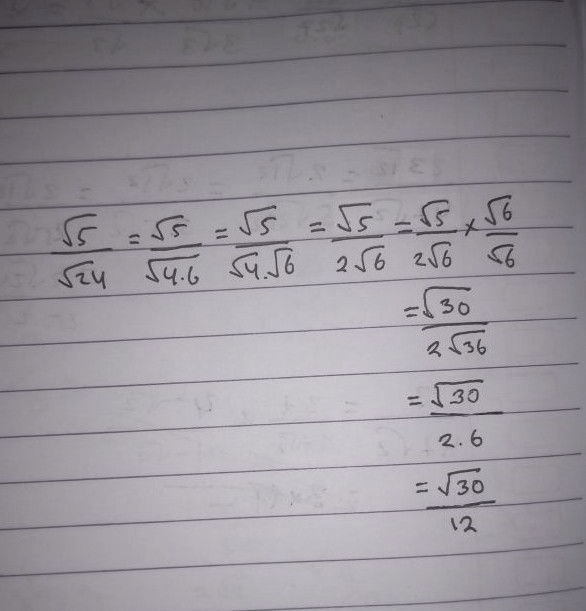 √5/√24 = √5/√4.6 = √5/√4.√6 = √5/2√6 = √5/2√6 × √6/√6
= √30/2√36
= √30/2.6
= √30/12